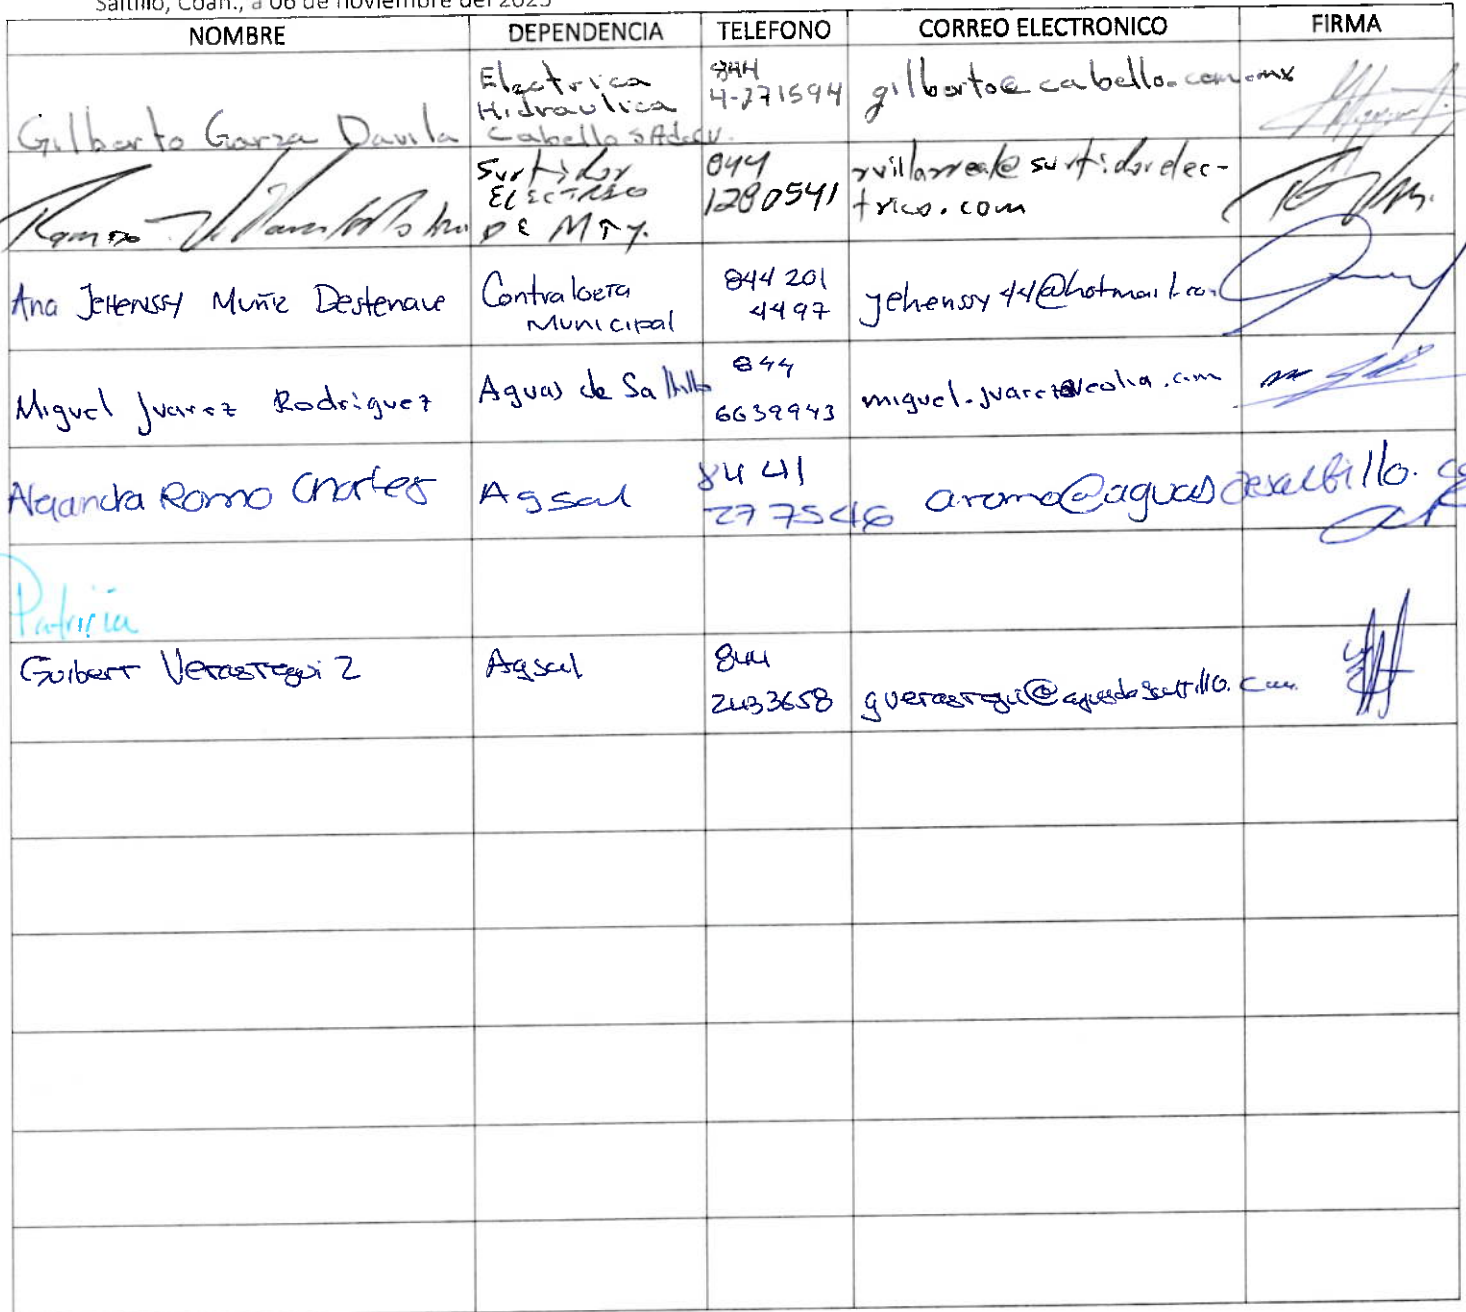 Saltillo, Coah., a 06 de noviembre del 2025
NOMBRE DEPENDENCIA TELEFONO CORREO ELECTRONICO FIRMA
Gilberto Garza Davila Electrica Hidraulica Cabello SAdeCV. 844 4-271594 gilberto@cabello.com.mx
Ramiro Surtidor ELECTRICO DE MTY. 844 1280541 rvillarreal@surtidorelec-
trico.com
Ana JEHENSSY Muñiz Destenave Contraloeria Municipal 844 201 4497 jehenssy44@hotmail.com
Miguel Juarez Rodriguez Aguas de Saltillo 844 6639943 miguel.juarez@veolia.com
Alejandra Romo Charles Agsal 84 41 277546 aromo@aguasdesaltillo.co
Patricia
Guibert Verastegui Z Agsal 844 2433658 gverastegui@aguasdesaltillo.com